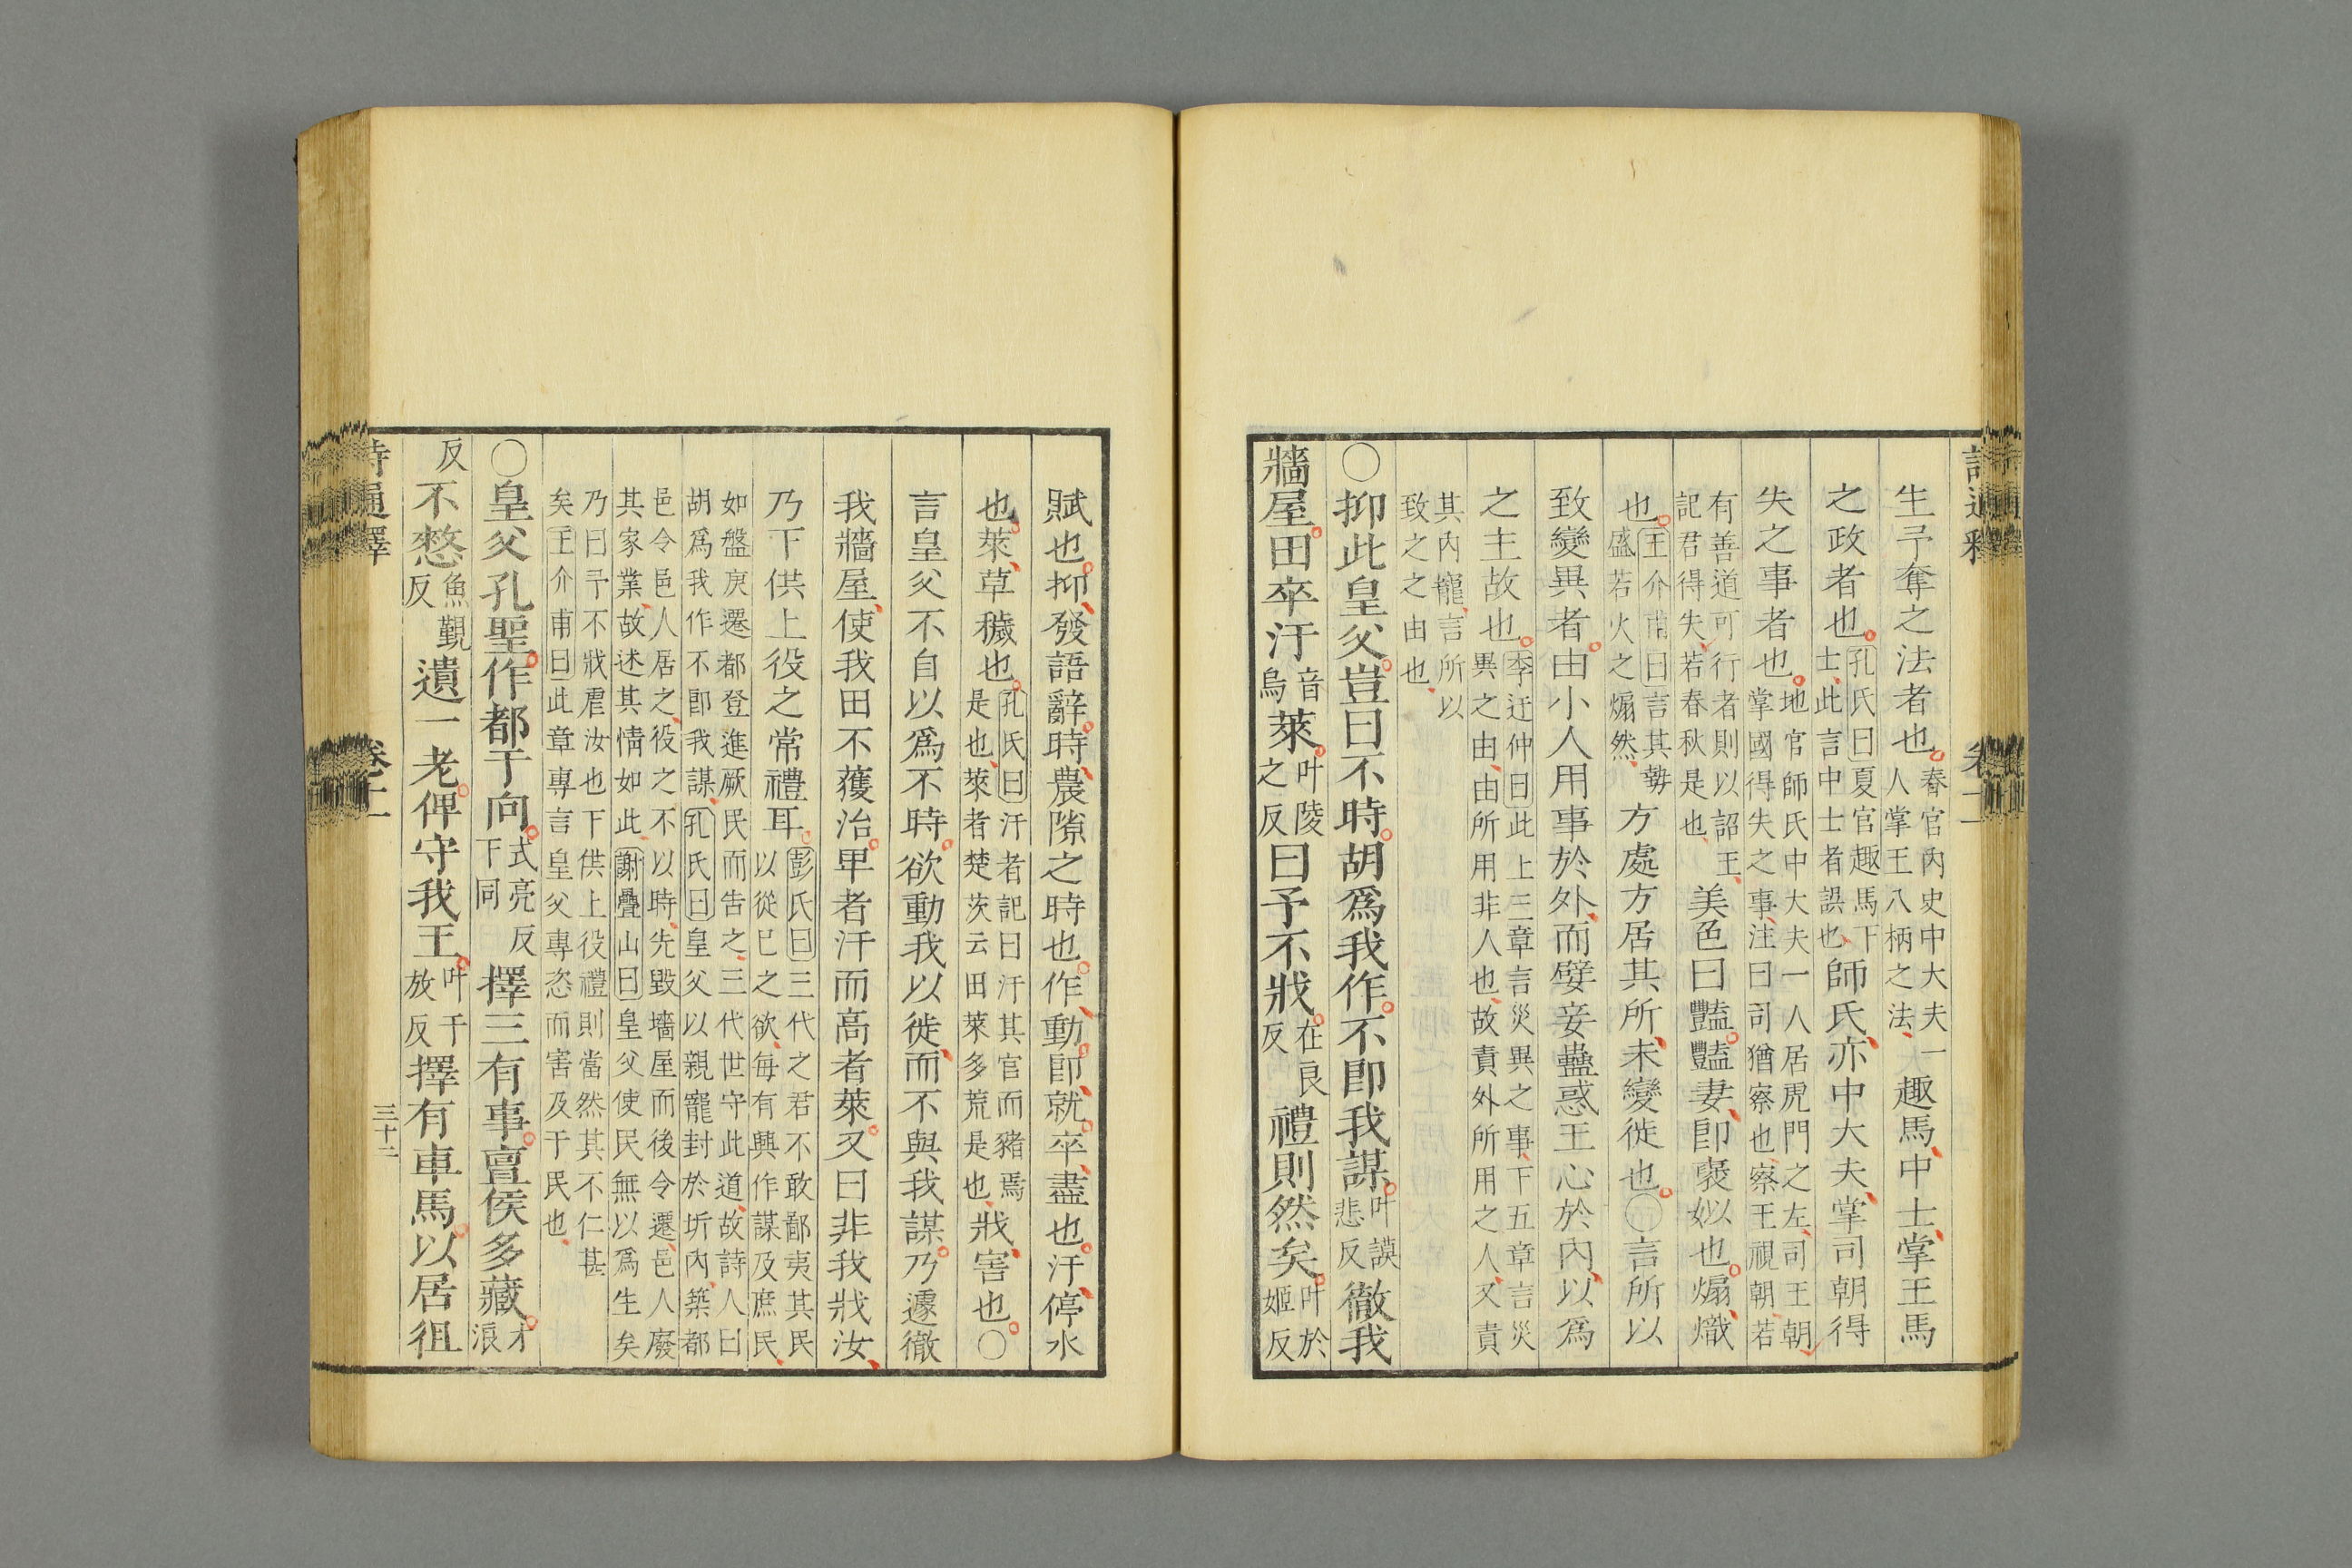 生予奪之法者也春官内史中大夫一人掌王八柄之法趣馬中士掌王馬
之政者也孔氏曰夏官趣馬下士此言中士者誤也師氏亦中大夫掌司朝得
失之事者也地官師氏中大夫一人居虎門之左司王朝掌國得失之事注曰司猶察也察王視朝若
有善道可行者則以詔王記君得失若春秋是也美色曰豔豔妻即襃姒也煽熾
也王介甫曰言其勢盛若火之煽然方處方居其所未變徙也○言所以
致變異者由小人用事於外而嬖妾蠱惑王心於内以爲
之主故也李迂仲曰此上三章言災異之事下五章言災異之由由所用非人也故責外所用之人又責
其内寵言所以致之之由也
○抑此皇父豈曰不時胡爲我作不即我謀叶謨悲反徹我
牆屋田卒汙音烏萊叶陵之反曰予不戕在良反禮則然矣叶於姬反
賦也抑發語辭時農隙之時也作動即就卒盡也汙停水
也萊草穢也孔氏曰汙者記曰汙其宮而豬焉是也萊者楚茨云田萊多荒是也戕害也○
言皇父不自以爲不時欲動我以徙而不與我謀乃遽徹
我牆屋使我田不獲治卑者汙而高者萊又曰非我戕汝
乃下供上役之常禮耳彭氏曰三代之君不敢鄙夷其民以從己之欲每有興作謀及庶民
如盤庚遷都登進厥民而告之三代世守此道故詩人曰胡爲我作不即我謀孔氏曰皇父以親寵封於圻内築都
邑令邑人居之役之不以時先毀墻屋而後令遷邑人廢其家業故述其情如此謝疊山曰皇父使民無以爲生矣
乃曰予不戕虐汝也下供上役禮則當然其不仁甚矣王介甫曰此章專言皇父專恣而害及于民也
○皇父孔聖作都于向式亮反下同擇三有事亶侯多藏才浪
反不憖魚覲反遺一老俾守我王叶于放反擇有車馬以居徂
三十二